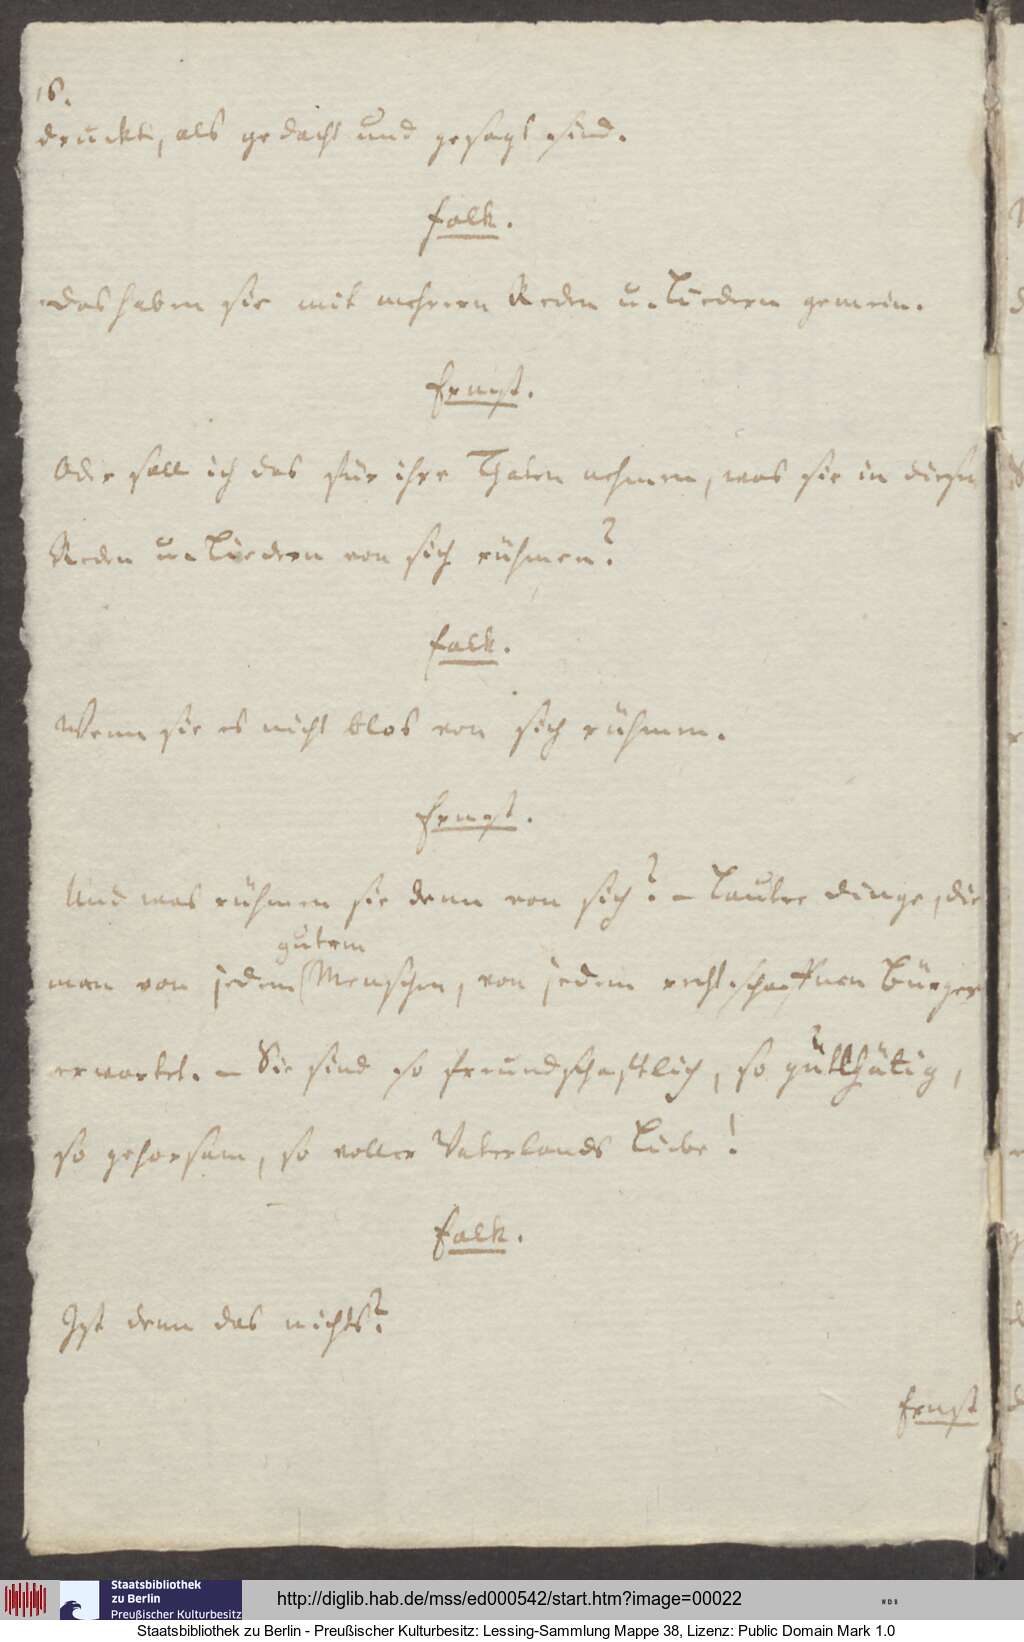 16.
druckt, als gedacht und gesagt sind.
Falk.
Das haben sie mit mehrern Reden u. Liedern gemein.
Ernst.
Oder soll ich das für ihre Thaten nehmen, was sie in diesen
Reden u. Liedern von sich rühmen?
Falk.
Wenn sie es nicht blos von sich rühmen.
Ernst.
Und was rühmen sie denn von sich? – Lauter Dinge, die
gutem
man von jedem Menschen, von jedem rechtschaffnen Bürger
erwartet. – Sie sind so freundschaftlich, so gutthätig,
so gehorsam, so voller Vaterlands Liebe!
Falk.
Ist denn das nichts?
Ernst
Staatsbibliothek
zu Berlin
Preußischer Kulturbesitz
http://diglib.hab.de/mss/ed000542/start.htm?image=00022
Staatsbibliothek zu Berlin - Preußischer Kulturbesitz: Lessing-Sammlung Mappe 38, Lizenz: Public Domain Mark 1.0